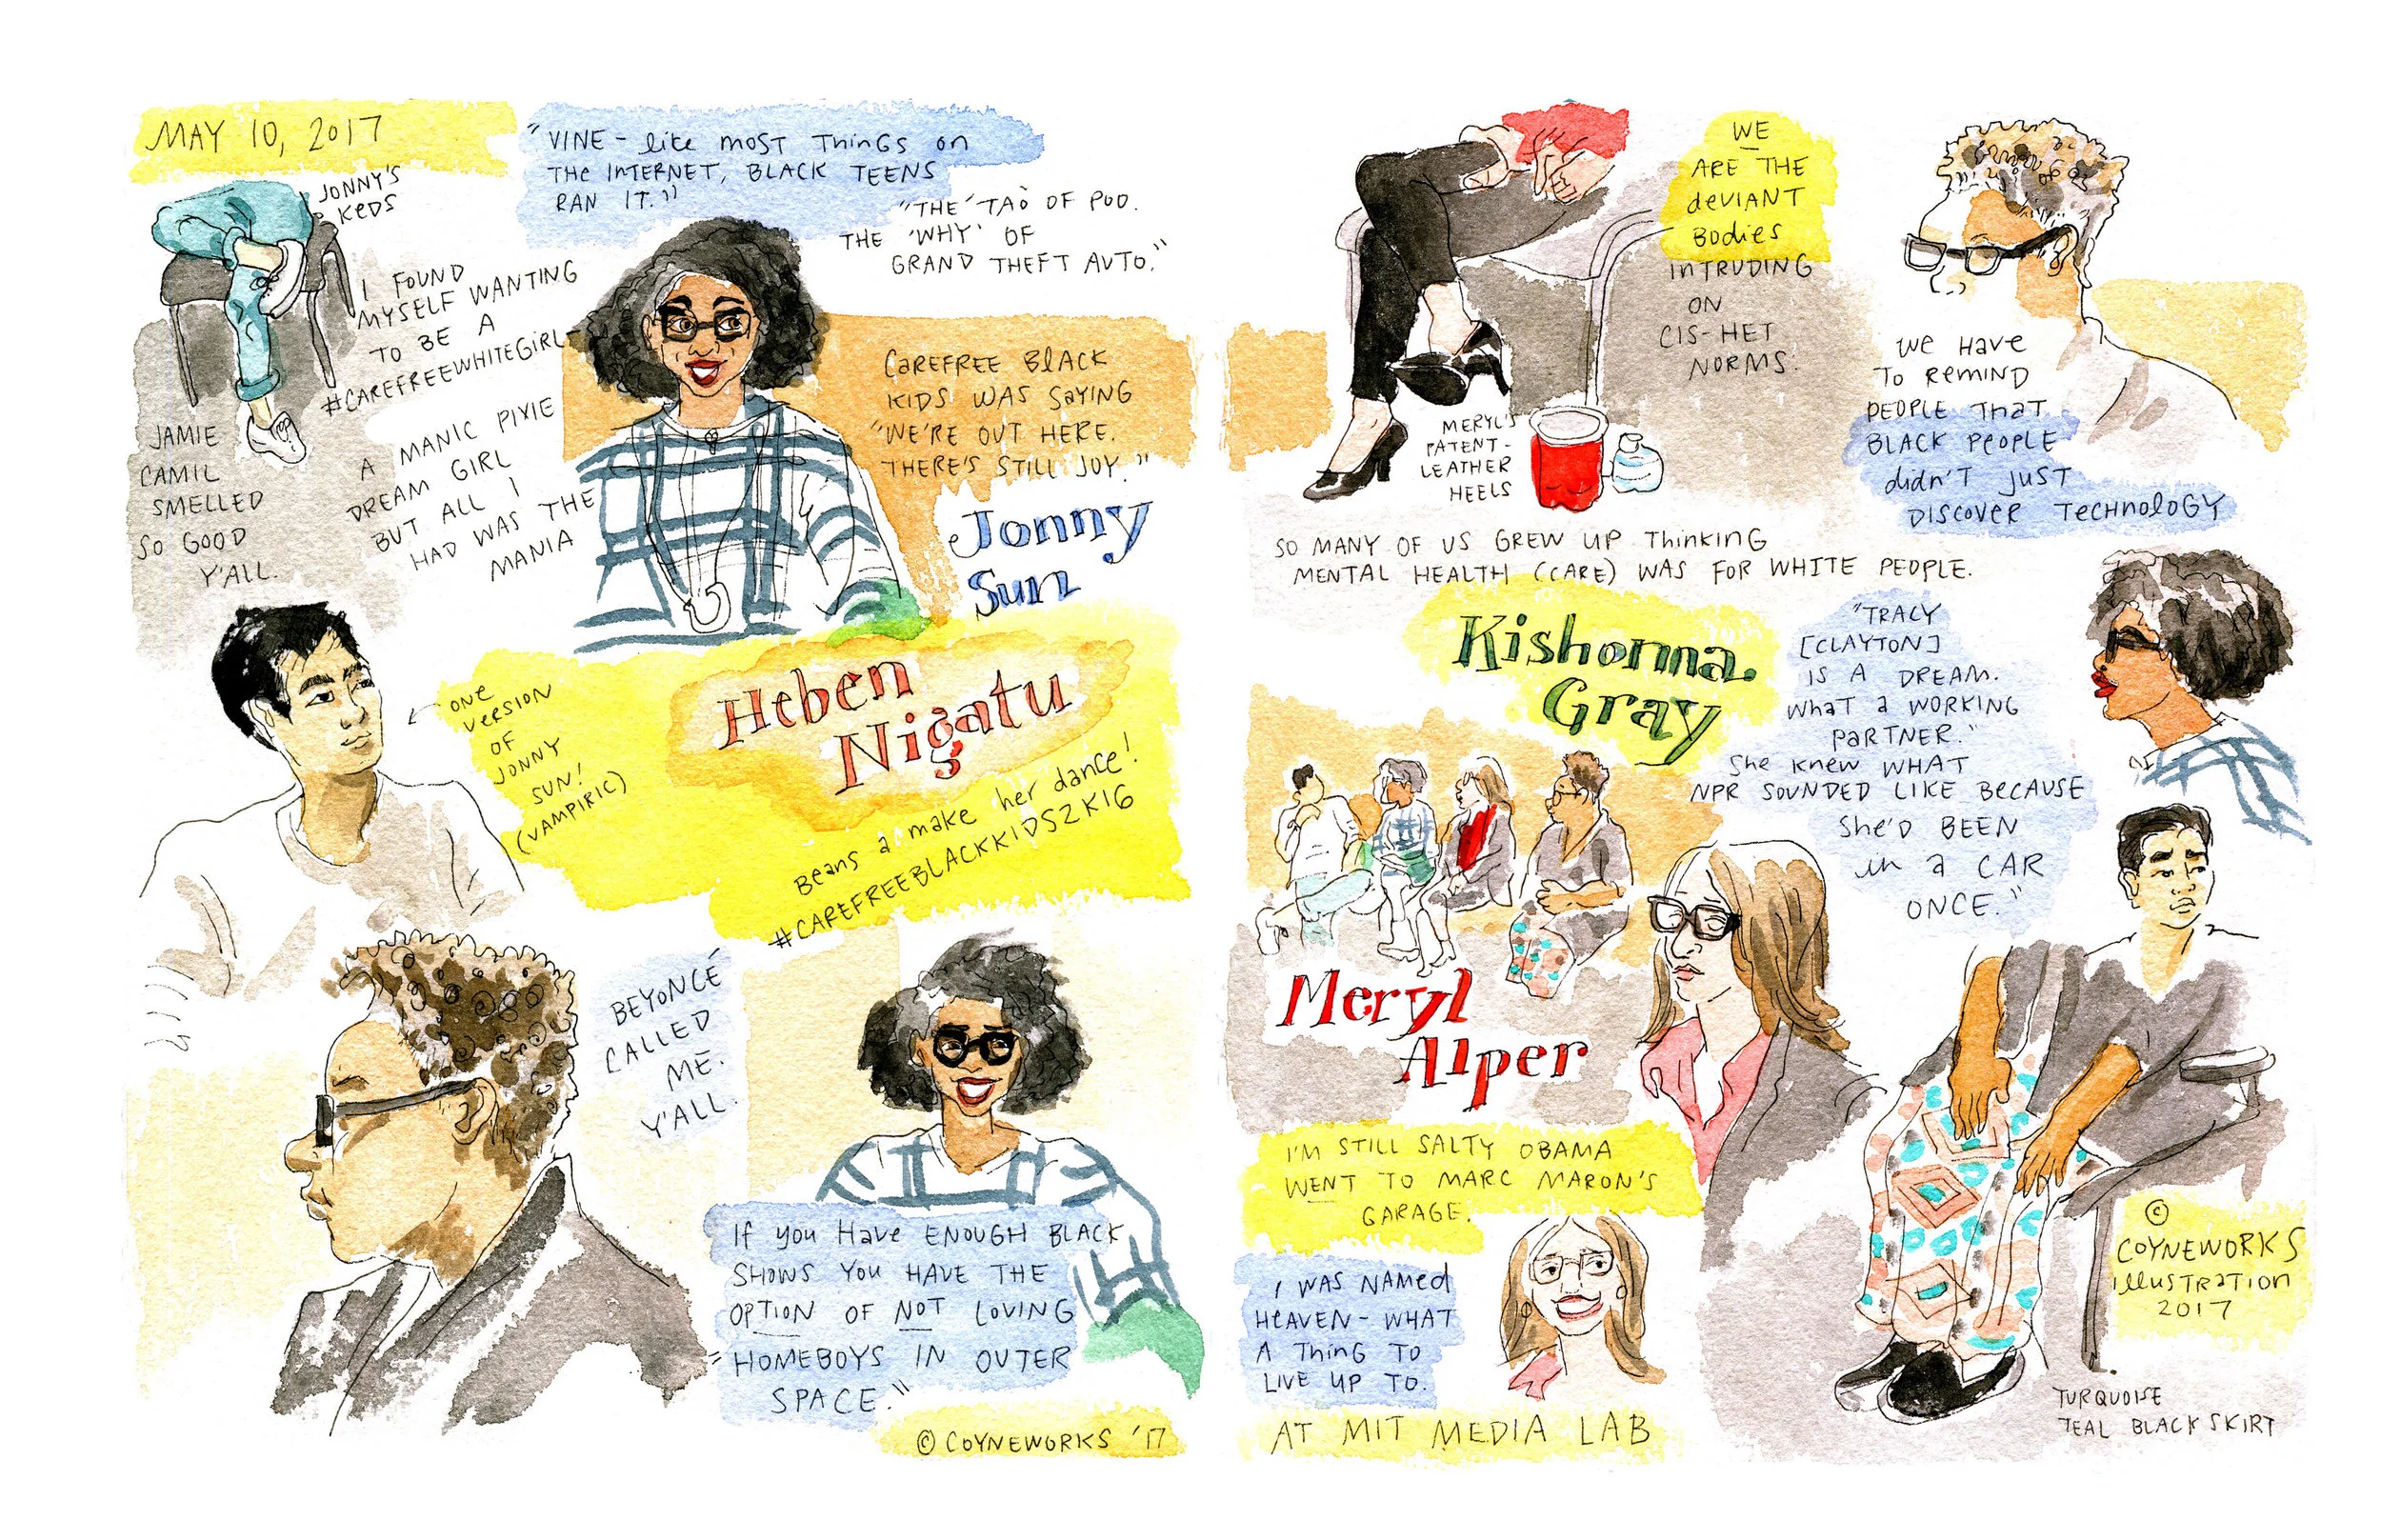 MAY 10, 2017
"VINE - like MOST THINGS ON
THE INTERNET, BLACK TEENS
RAN IT."
JONNY'S
KEDS
"THE 'TAO' OF POO.
THE 'WHY' OF
GRAND THEFT AUTO."
I FOUND
MYSELF WANTING
TO BE A
#CAREFREEWHITEGIRL-
A MANIC PIXIE
DREAM GIRL
BUT ALL I
HAD WAS THE
MANIA
JAMIE
CAMIL
SMELLED
SO GOOD
Y'ALL.
CAREFREE BLACK
KIDS WAS SAYING
"WE'RE OUT HERE.
THERE'S STILL JOY."
Jonny
Sun
ONE
VERSION
OF
JONNY
SUN!
(VAMPIRIC)
Heben
Nigatu
Beans a make her dance!
#CAREFREEBLACKKIDS2K16
BEYONCÉ
CALLED
ME.
Y'ALL.
If you Have ENOUGH BLACK
SHOWS YOU HAVE THE
OPTION OF NOT LOVING
"HOMEBOYS IN OUTER
SPACE."
© COYNEWORKS '17
WE
ARE THE
deVIANT
Bodies
INTRUDING
ON
CIS-HET
NORMS.
MERYL'S
PATENT-
LEATHER
HEELS
We HAVE
TO REMIND
PEOPLE THAT
BLACK PEOPLE
didn't JUST
DISCOVER TECHNOLOGY
SO MANY OF US GREW UP THINKING
MENTAL HEALTH (CARE) WAS FOR WHITE PEOPLE.
Kishonna
Gray
"TRACY
[CLAYTON]
IS A DREAM.
WHAT a WORKING
PARTNER."
She knew WHAT
NPR SOUNDED LIKE BECAUSE
She'D BEEN
in a CAR
ONCE."
Meryl
Alper
I'M STILL SALTY OBAMA
WENT TO MARC MARON'S
GARAGE.
I WAS NAMED
HEAVEN - WHAT
A THING TO
LIVE UP TO.
AT MIT MEDIA LAB
©
COYNEWORKS
illUSTRATION
2017
TURQUOISE
TEAL BLACK SKIRT